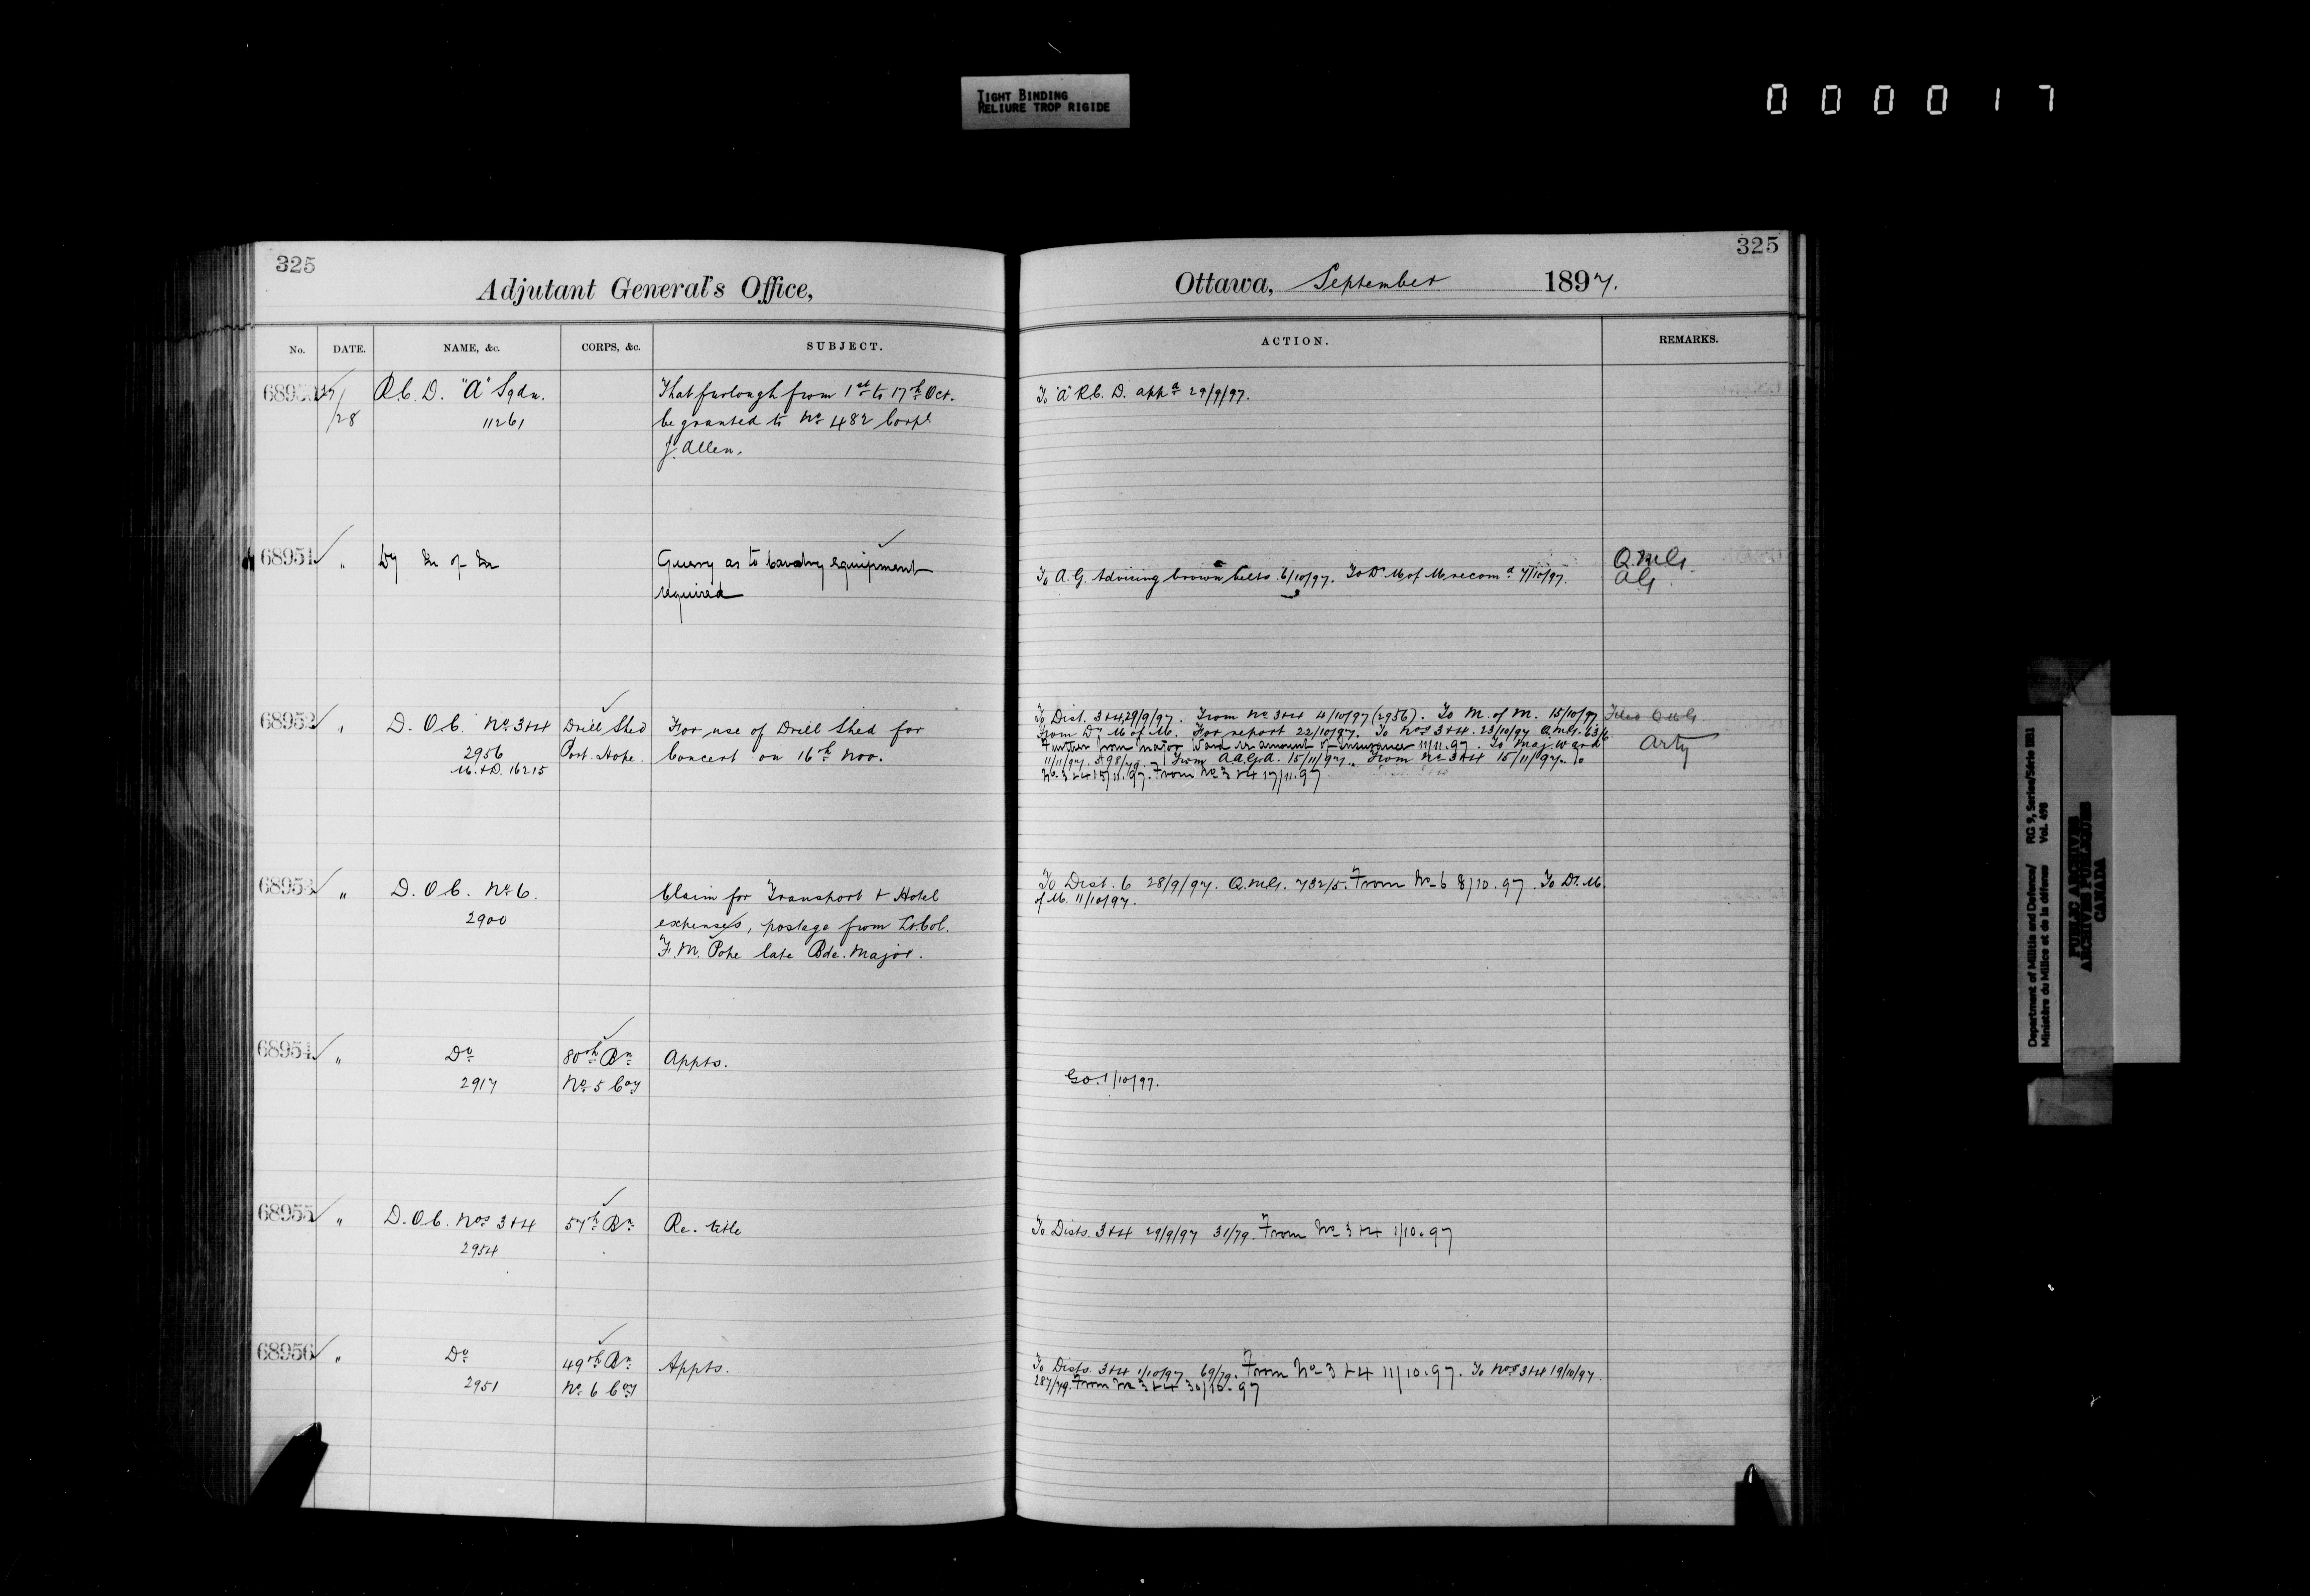 TIGHT BINDING
RELIURE TROP RIGIDE
000017
325
Adjutant General's Office,
No. DATE. NAME, &c. CORPS, &c. SUBJECT.
R.C.D. "A" Sqdn. That furlough from 1st to 17th Oct.
28 11261 be granted to No 482 Corpl
J. Allen.
68951 " Dy M of M Query as to Cavalry equipment
required
68952 " D.O.C. No 3+4 Drill Shed For use of Drill Shed for
2956 Port Hope. Concert on 16th Nov.
M.+D. 16215
68953 " D.O.C. No 6. Claim for Transport + Hotel
2900 expenses, postage from Lt. Col.
F.M. Pope late Bde. Major.
68954 " Do 80th Bn Appts.
2917 No 5 Coy
68955 " D.O.C. Nos 3+4 57th Bn Re. title
2954
68956 " Do 49th Bn Appts.
2951 No 6 Coy
325
Ottawa, September 1897.
ACTION. REMARKS.
To "A" R.C.D. appd 29/9/97.
Q.M.G.
To A.G. Advising brown belts 6/10/97. To D. M of M recomd 7/10/97. A.G.
To Dist. 3+4 29/9/97. From No 3+4 4/10/97 (2956). To M. of M. 15/10/97
From Dy M of M. For report 22/10/97. To Nos 3+4. 23/10/97 Q.M.G. 63/6
Further from Major Ward re amount of insurance 11/11.97. To Maj. Ward Arty
11/11/97. From A.A.G.A. 15/11/97. From No 3+4 15/11/97. To
No 3+4 15/11.97. From No 3+4 17/11.97
To Dist. 6 28/9/97. Q.M.G. 732/5. From No 6 8/10.97. To D. M.
of M. 11/10/97.
G.O. 1/10/97.
To Dists. 3+4 29/9/97 31/79. From No 3+4 1/10.97
To Dists. 3+4 1/10/97 69/79. From No 3+4 11/10.97. To Nos 3+4 19/10/97.
287/79. From No 3+4 30/10.97
Department of Militia and Defence/ RG 9, Series/Série IIB1
Ministère du Milice et de la défense Vol. 498
PUBLIC ARCHIVES
ARCHIVES PUBLIQUES
CANADA